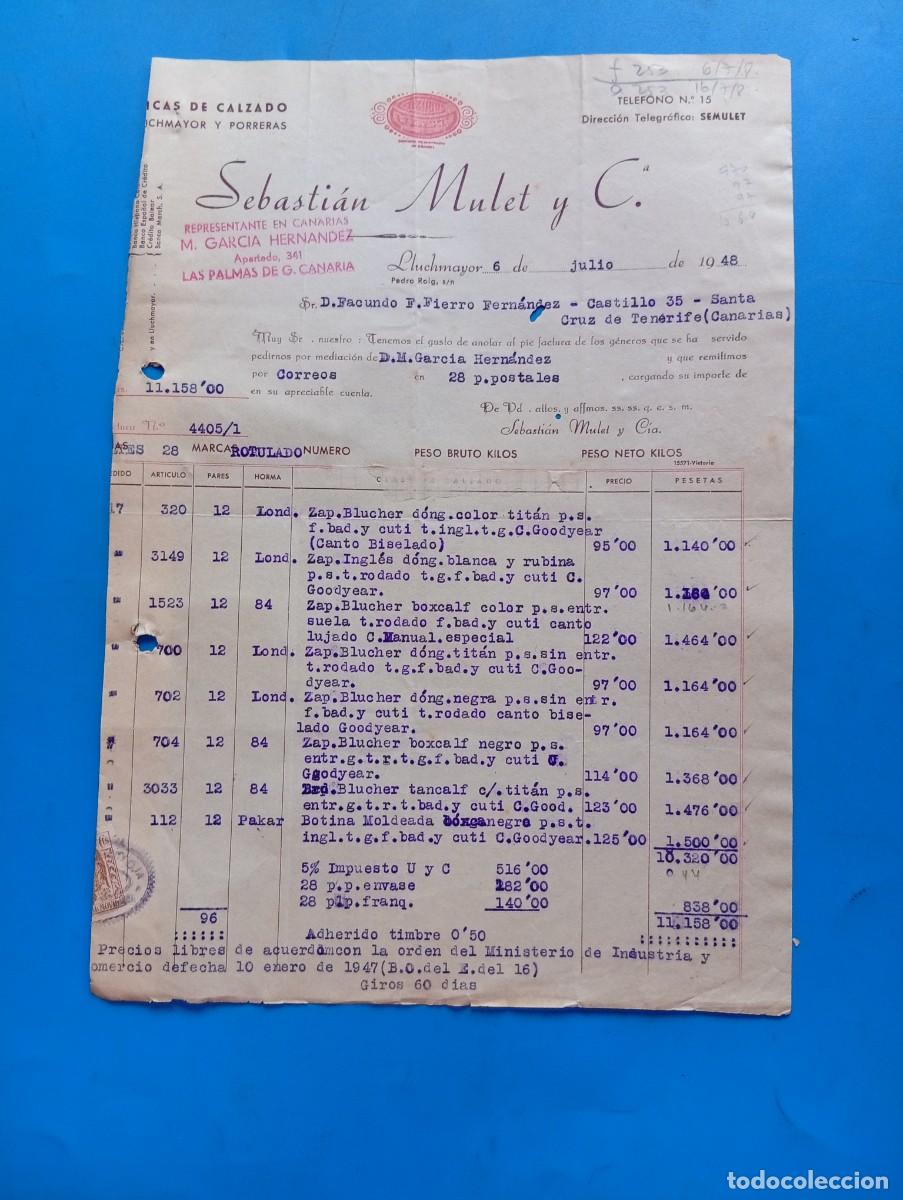 ICAS DE CALZADO
CHMAYOR Y PORRERAS
TELEFONO N.º 15
Dirección Telegráfica: SEMULET
Banco Español de Crédito
Crédito Balear
Banco March, S. A.
y en Lluchmayor.
Sebastián Mulet y C.ª
REPRESENTANTE EN CANARIAS
M. GARCIA HERNANDEZ
Apartado, 341
LAS PALMAS DE G. CANARIA
Lluchmayor 6 de julio de 1948
Pedro Roig, s/n
Sr. D.Facundo F.Fierro Fernández - Castillo 35 - Santa
Cruz de Tenerife(Canarias)
Muy Sr. nuestro: Tenemos el gusto de anotar al pie factura de los géneros que se ha servido
pedirnos por mediación de D.M.Garcia Hernández y que remitimos
por Correos en 28 p.postales, cargando su importe de
11.158'00 en su apreciable cuenta.
De Vd. attos. y affmos. ss. ss. q. e. s. m.
Sebastián Mulet y Cía.
Nº 4405/1
28 MARCA ROTULADO NUMERO PESO BRUTO KILOS PESO NETO KILOS
15571-Victoria
DIDO ARTICULO PARES HORMA CLASE DE CALZADO PRECIO PESETAS
17 320 12 Lond. Zap.Blucher dóng.color titán p.s.
f.bad.y cuti t.ingl.t.g.C.Goodyear
(Canto Biselado) 95'00 1.140'00
" 3149 12 Lond. Zap.Inglés dóng.blanca y rubina
p.s.t.rodado t.g.f.bad.y cuti C.
Goodyear. 97'00 1.164'00
" 1523 12 84 Zap.Blucher boxcalf color p.s.entr.
suela t.rodado f.bad.y cuti canto
lujado C.Manual.especial 122'00 1.464'00
" 700 12 Lond. Zap.Blucher dóng.titán p.s.sin entr.
t.rodado t.g.f.bad.y cuti C.Goo-
dyear. 97'00 1.164'00
" 702 12 Lond. Zap.Blucher dóng.negra p.s.sin entr.
f.bad.y cuti t.rodado canto bise-
lado Goodyear. 97'00 1.164'00
" 704 12 84 Zap.Blucher boxcalf negro p.s.
entr.g.t.r.t.g.f.bad.y cuti C.
Goodyear. 114'00 1.368'00
" 3033 12 84 Blucher tancalf c/.titán p.s.
entr.g.t.r.t.bad.y cuti C.Good. 123'00 1.476'00
" 112 12 Pakar Botina Moldeada negra p.s.t.
ingl.t.g.f.bad.y cuti C.Goodyear. 125'00 1.500'00
10.320'00
5% Impuesto U y C 516'00
28 p.p.envase 182'00
28 p.p.franq. 140'00 838'00
96 11.158'00
Adherido timbre 0'50
Precios libres de acuerdo con la orden del Ministerio de Industria y
omercio de fecha 10 enero de 1947(B.O.del E.del 16)
Giros 60 dias
todocoleccion